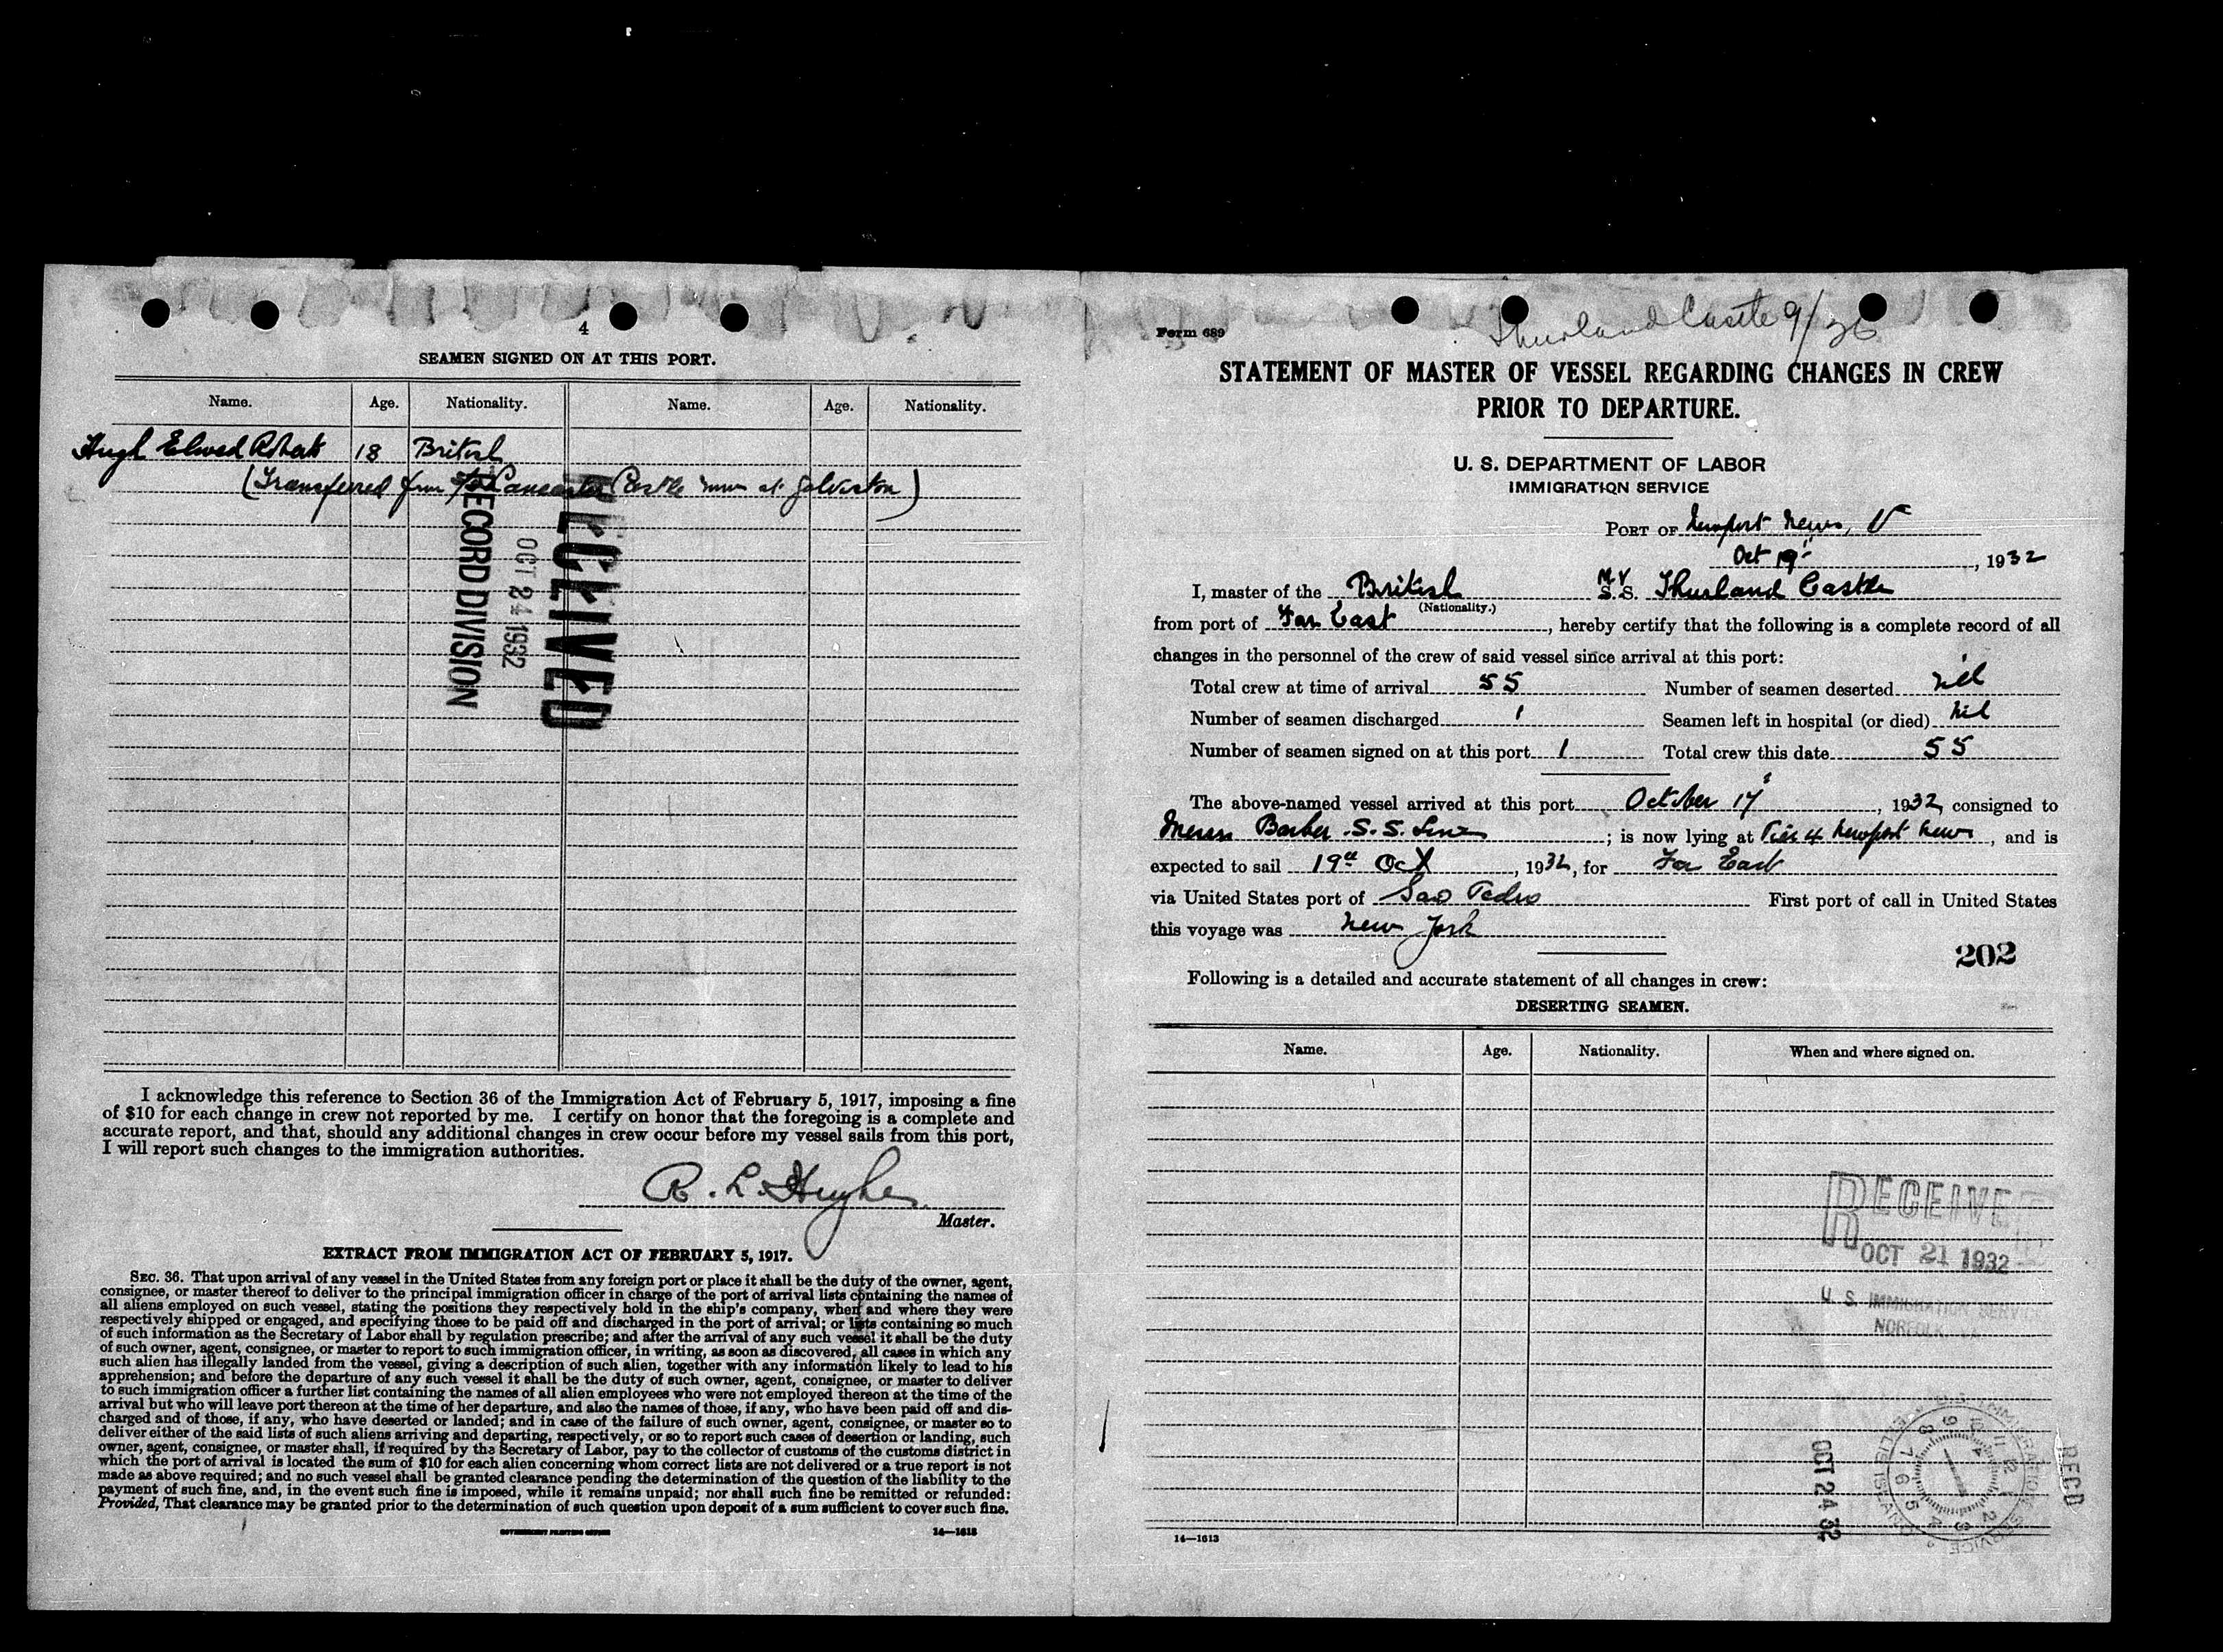 4
SEAMEN SIGNED ON AT THIS PORT.
Name. Age. Nationality. Name. Age. Nationality.
Hugh Elwed Roberts 18 British
(Transferred from Lancaster Castle now at Galveston)
RECEIVED
OCT 24 1932
RECORD DIVISION
I acknowledge this reference to Section 36 of the Immigration Act of February 5, 1917, imposing a fine
of $10 for each change in crew not reported by me. I certify on honor that the foregoing is a complete and
accurate report, and that, should any additional changes in crew occur before my vessel sails from this port,
I will report such changes to the immigration authorities.
R. L. Hughes
Master.
EXTRACT FROM IMMIGRATION ACT OF FEBRUARY 5, 1917.
SEC. 36. That upon arrival of any vessel in the United States from any foreign port or place it shall be the duty of the owner, agent,
consignee, or master thereof to deliver to the principal immigration officer in charge of the port of arrival lists containing the names of
all aliens employed on such vessel, stating the positions they respectively hold in the ship's company, when and where they were
respectively shipped or engaged, and specifying those to be paid off and discharged in the port of arrival; or lists containing so much
of such information as the Secretary of Labor shall by regulation prescribe; and after the arrival of any such vessel it shall be the duty
of such owner, agent, consignee, or master to report to such immigration officer, in writing, as soon as discovered, all cases in which any
such alien has illegally landed from the vessel, giving a description of such alien, together with any information likely to lead to his
apprehension; and before the departure of any such vessel it shall be the duty of such owner, agent, consignee, or master to deliver
to such immigration officer a further list containing the names of all alien employees who were not employed thereon at the time of the
arrival but who will leave port thereon at the time of her departure, and also the names of those, if any, who have been paid off and dis-
charged and of those, if any, who have deserted or landed; and in case of the failure of such owner, agent, consignee, or master so to
deliver either of the said lists of such aliens arriving and departing, respectively, or so to report such cases of desertion or landing, such
owner, agent, consignee, or master shall, if required by the Secretary of Labor, pay to the collector of customs of the customs district in
which the port of arrival is located the sum of $10 for each alien concerning whom correct lists are not delivered or a true report is not
made as above required; and no such vessel shall be granted clearance pending the determination of the question of the liability to the
payment of such fine, and, in the event such fine is imposed, while it remains unpaid; nor shall such fine be remitted or refunded:
Provided, That clearance may be granted prior to the determination of such question upon deposit of a sum sufficient to cover such fine.
GOVERNMENT PRINTING OFFICE 14—1613
Form 689
Thurland Castle 9/36
STATEMENT OF MASTER OF VESSEL REGARDING CHANGES IN CREW
PRIOR TO DEPARTURE.
U. S. DEPARTMENT OF LABOR
IMMIGRATION SERVICE
PORT OF Newport News, V
Oct 19, 1932
I, master of the British M.V. S.S. Thurland Castle
(Nationality.)
from port of Far East, hereby certify that the following is a complete record of all
changes in the personnel of the crew of said vessel since arrival at this port:
Total crew at time of arrival 55 Number of seamen deserted nil
Number of seamen discharged 1 Seamen left in hospital (or died) nil
Number of seamen signed on at this port 1 Total crew this date 55
The above-named vessel arrived at this port October 17, 1932, consigned to
Messrs Barber S.S. Lines; is now lying at Pier 4 Newport News, and is
expected to sail 19th Oct, 1932, for Far East
via United States port of San Pedro First port of call in United States
this voyage was New York
202
Following is a detailed and accurate statement of all changes in crew:
DESERTING SEAMEN.
Name. Age. Nationality. When and where signed on.
RECEIVED
OCT 21 1932
U. S. IMMIGRATION SERVICE
NORFOLK, VA
REC'D
OCT 24 32
IMMIGRATION SERVICE
ELLIS ISLAND
14—1613